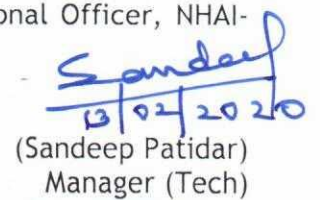 onal Officer, NHAI-
Sandeep
13/02/2020
(Sandeep Patidar)
Manager (Tech)